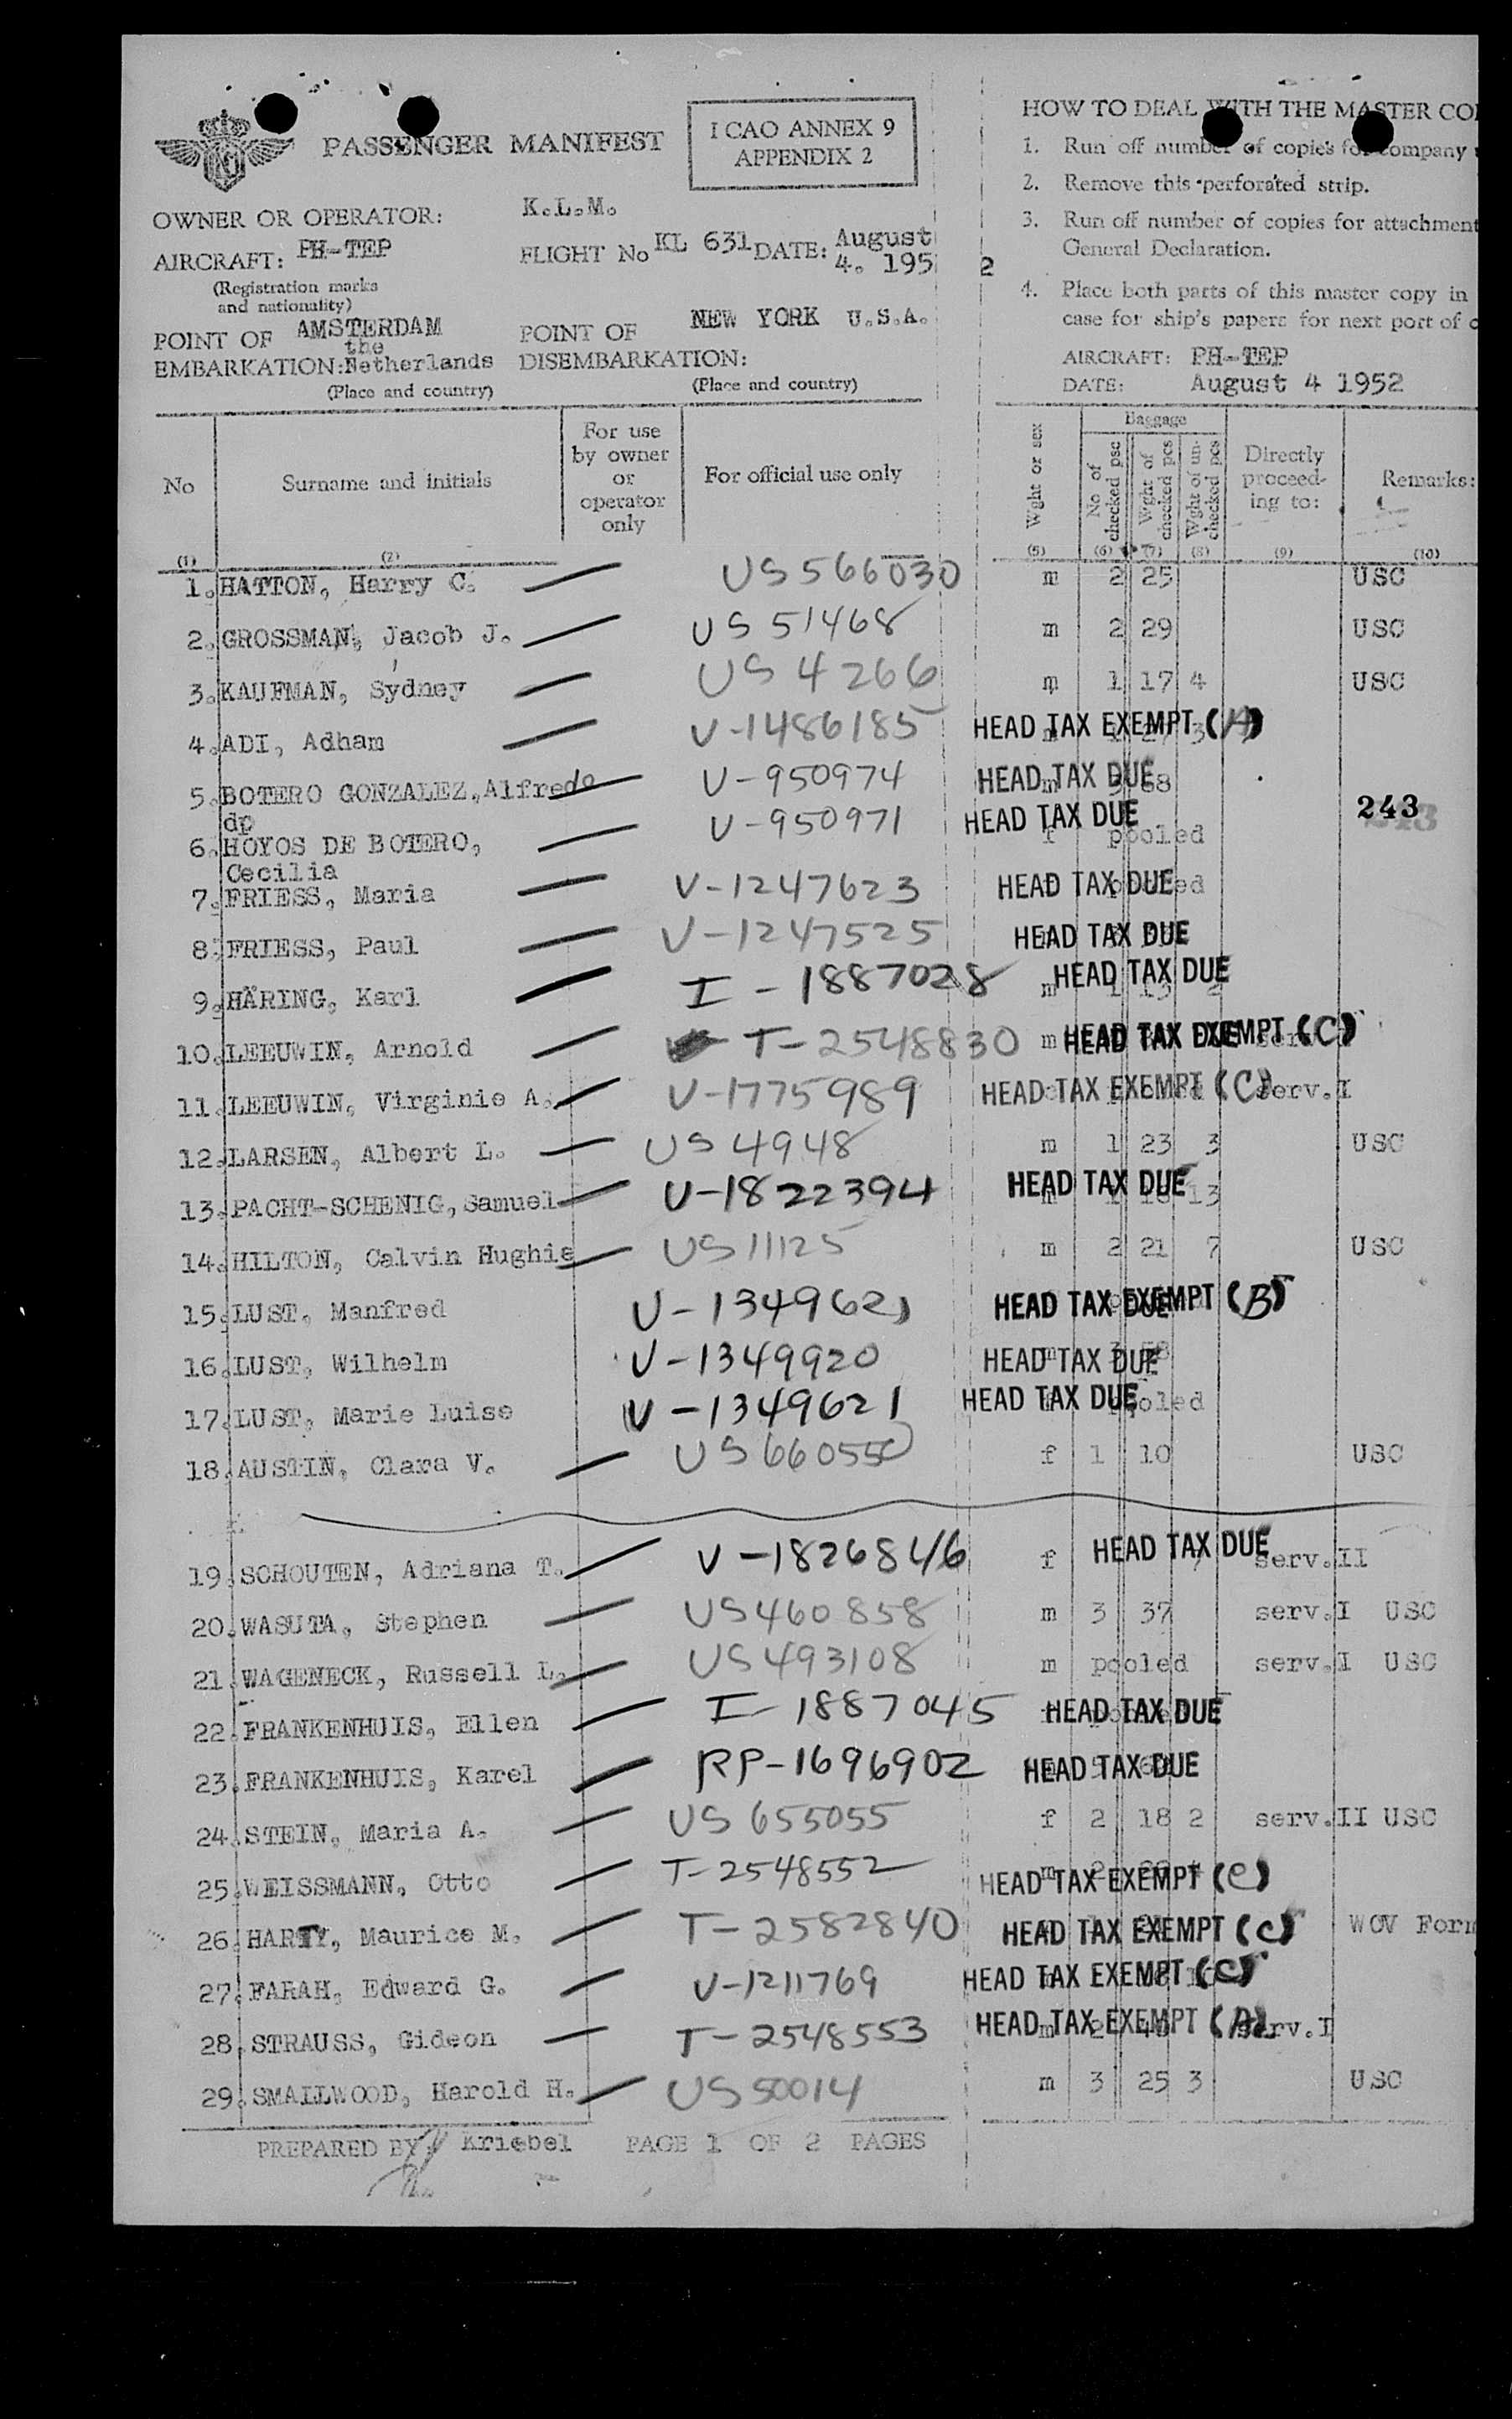 PASSENGER MANIFEST
I CAO ANNEX 9
APPENDIX 2
OWNER OR OPERATOR: K.L.M.
AIRCRAFT: PH-TEP FLIGHT No KL 631 DATE: August
4. 1952
(Registration marks
and nationality)
POINT OF AMSTERDAM POINT OF NEW YORK U.S.A.
the
EMBARKATION: Netherlands DISEMBARKATION:
(Place and country) (Place and country)
HOW TO DEAL WITH THE MASTER CO
1. Run off number of copies for company
2. Remove this perforated strip.
3. Run off number of copies for attachment
General Declaration.
4. Place both parts of this master copy in
case for ship's papers for next port of
AIRCRAFT: PH-TEP
DATE: August 4 1952
No Surname and initials For use by owner or operator only For official use only Wght or sex Baggage No of checked psc Wght of checked pcs Wght of un-checked pcs Directly proceed-ing to: Remarks:
(1) (2) (5) (6) (7) (8) (9) (10)
1. HATTON, Harry C. US 566030 m 2 25 USC
2. GROSSMAN, Jacob J. US 51468 m 2 29 USC
3. KAUFMAN, Sydney US 4266 m 1 17 4 USC
4. ADI, Adham V-1486185 HEAD TAX EXEMPT (A)
5. BOTERO GONZALEZ, Alfredo V-950974 HEAD TAX DUE 68
dp
243
6. HOYOS DE BOTERO, V-950971 HEAD TAX DUE f pooled
Cecilia
7. FRIESS, Maria V-1247623 HEAD TAX DUE
8. FRIESS, Paul V-1247525 HEAD TAX DUE
9. HÄRING, Karl I-1887028 m HEAD TAX DUE
10. LEEUWIN, Arnold T-2548830 m HEAD TAX EXEMPT (C)
11. LEEUWIN, Virginie A. V-1775989 HEAD TAX EXEMPT (C) serv.I
12. LARSEN, Albert L. US 4948 m 1 23 3 USC
13. PACHT-SCHENIG, Samuel V-1822394 HEAD TAX DUE 13
14. HILTON, Calvin Hughie US 11125 m 2 21 7 USC
15. LUST, Manfred V-1349621 HEAD TAX EXEMPT (B)
16. LUST, Wilhelm V-1349920 HEAD TAX DUE
17. LUST, Marie Luise V-1349621 HEAD TAX DUE pooled
18. AUSTIN, Clara V. US 660550 f 1 10 USC
19. SCHOUTEN, Adriana T. V-1826846 f HEAD TAX DUE serv.II
20. WASUTA, Stephen US 460858 m 3 37 serv.I USC
21. WAGENECK, Russell L. US 493108 m pooled serv.I USC
22. FRANKENHUIS, Ellen I-1887045 HEAD TAX DUE
23. FRANKENHUIS, Karel RP-1696902 HEAD TAX DUE
24. STEIN, Maria A. US 655055 f 2 18 2 serv.II USC
25. WEISSMANN, Otto T-2548552 HEAD TAX EXEMPT (C)
26. HARTY, Maurice M. T-2582840 HEAD TAX EXEMPT (C) WOV Form
27. FARAH, Edward G. V-1211769 HEAD TAX EXEMPT (C)
28. STRAUSS, Gideon T-2548553 HEAD TAX EXEMPT (A) serv.I
29. SMALLWOOD, Harold H. US 50014 m 3 25 3 USC
PREPARED BY Kriebel PAGE 1 OF 2 PAGES